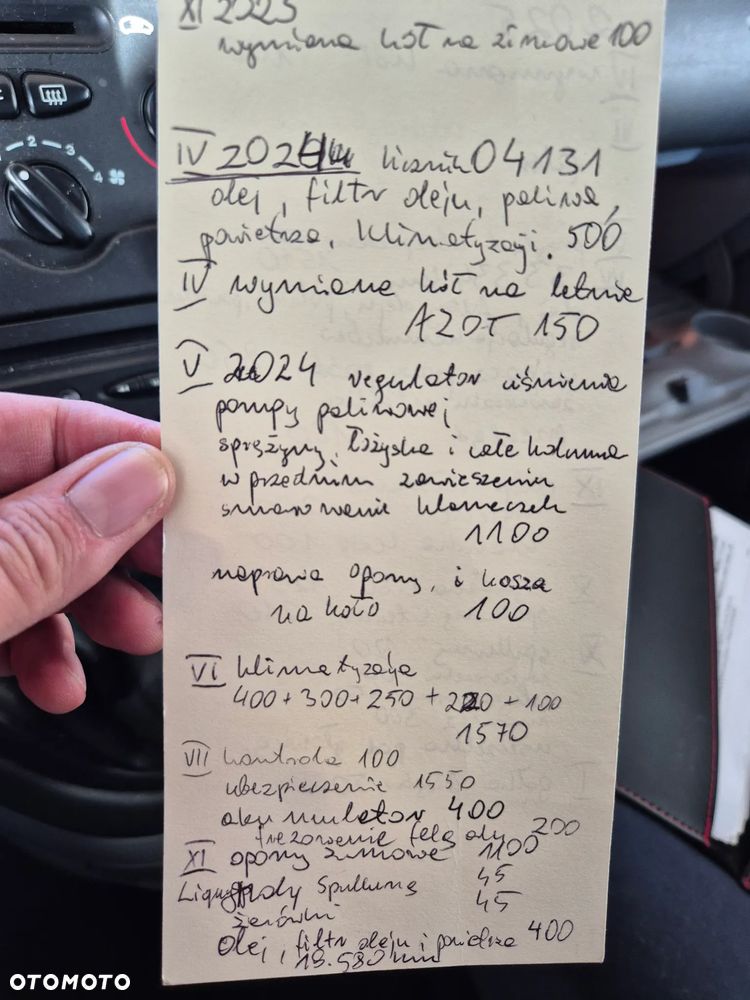 XI 2023
wymiana kół na zimowe 100
IV 2024 licznik 04131
olej, filtr oleju, paliwa,
powietrza, klimatyzacji. 500
IV wymiana kół na letnie
AZOT 150
V 2024 regulator ciśnienia
pompy paliwowej
sprężyny, łożyska i całe kolumna
w przednim zawieszeniu
smarowanie klameczek
1100
naprawa opony, i kosza
na koło 100
VI klimatyzacja
400 + 300 + 250 + 220 + 100
1570
VII kontrola 100
ubezpieczenie 1550
akumulator 400
frezowanie felg 200
XI opony zimowe 1100
45
żarówki 45
olej, filtr oleju i powietrza 400
19.580 km
2 3 4
OTOMOTO